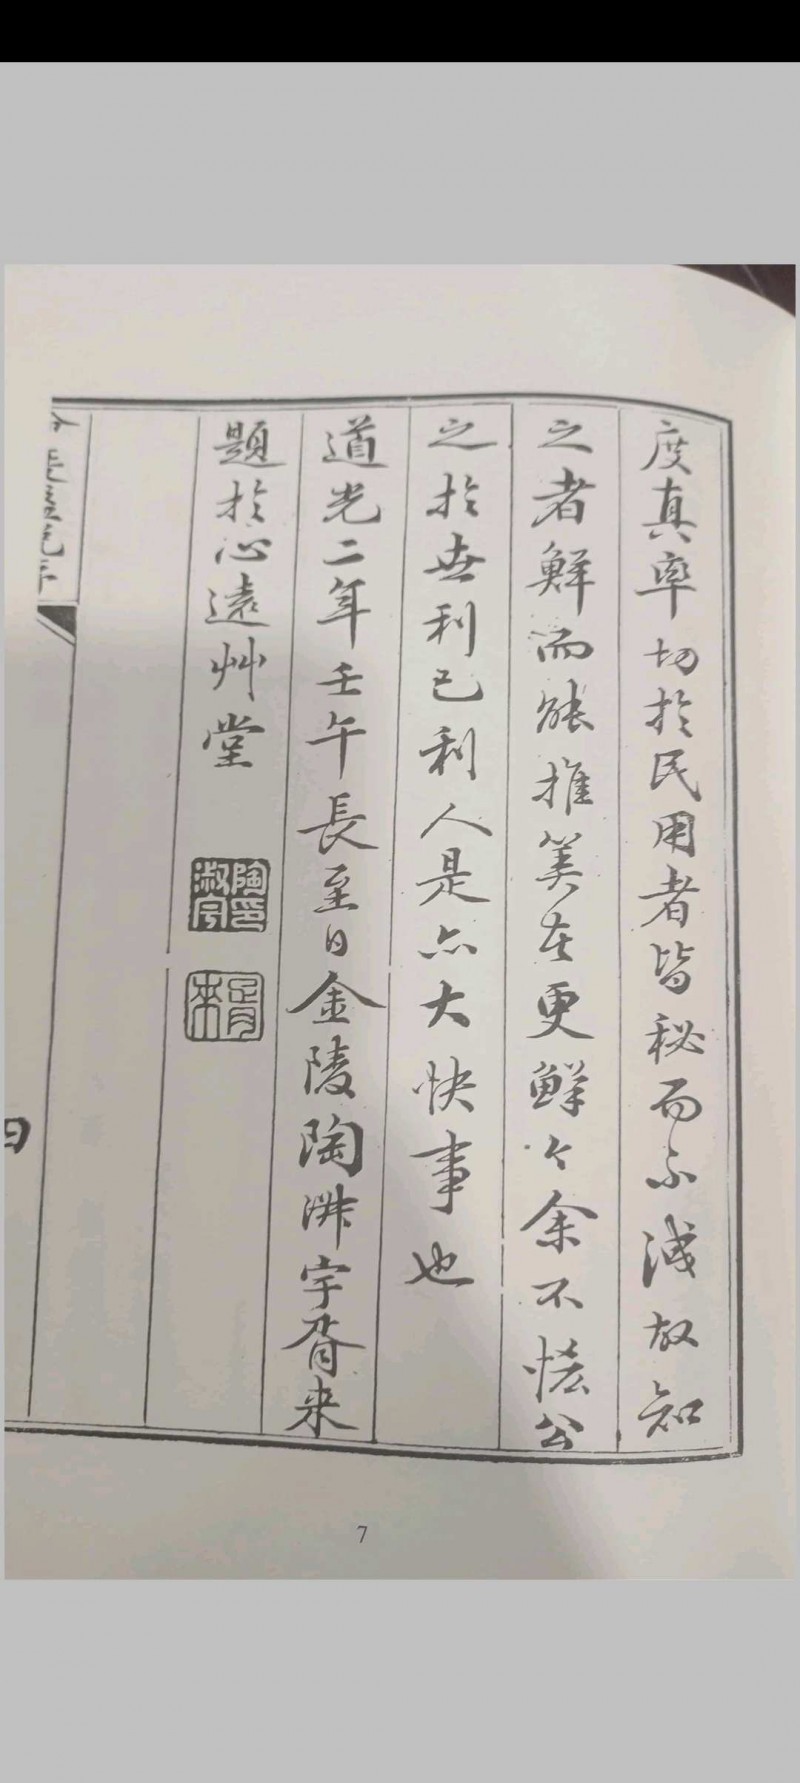 度真率切於民用者皆秘而不洩故知
之者鮮而能推算者更鮮々余不惜公
之於世利己利人是亦大快事也
道光二年壬午長至日金陵陶淑宇胥来
題於心遠艸堂
陶印淑宇
胥来
四
7